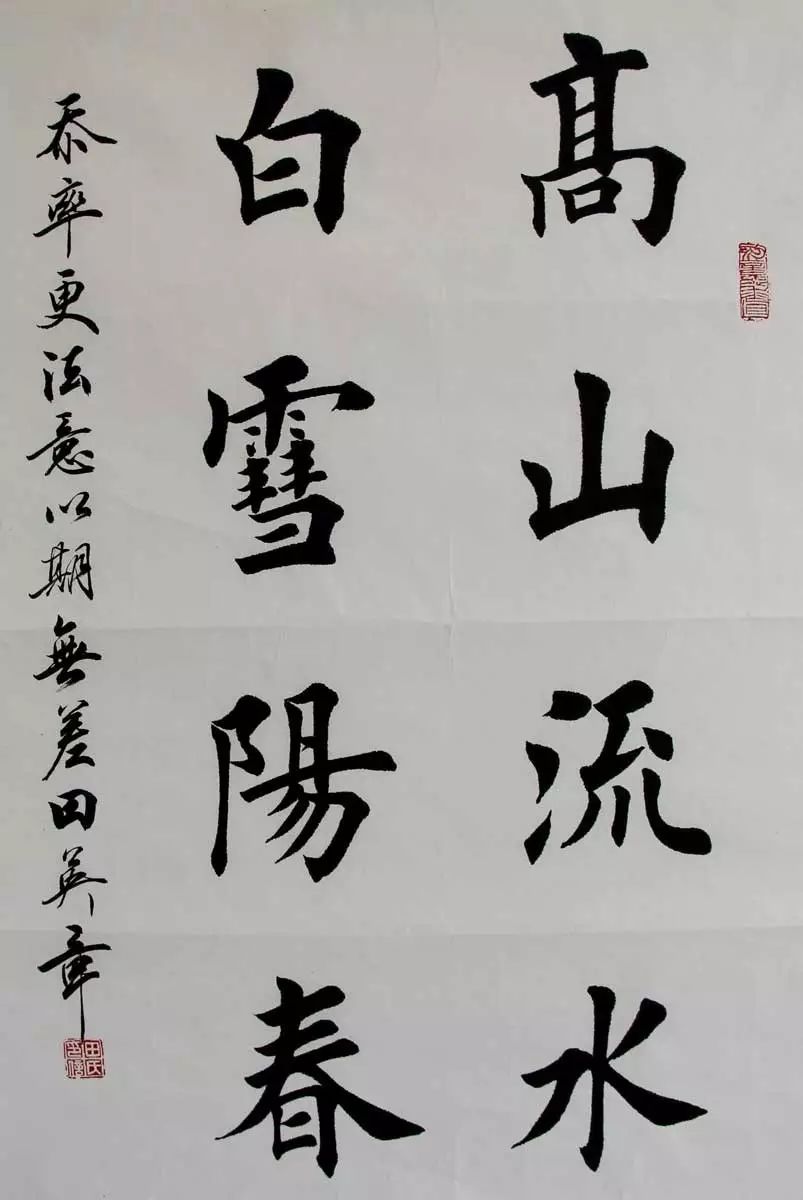 髙山流水
白雪陽春
忝率更法意以期無差田英章
田氏印信